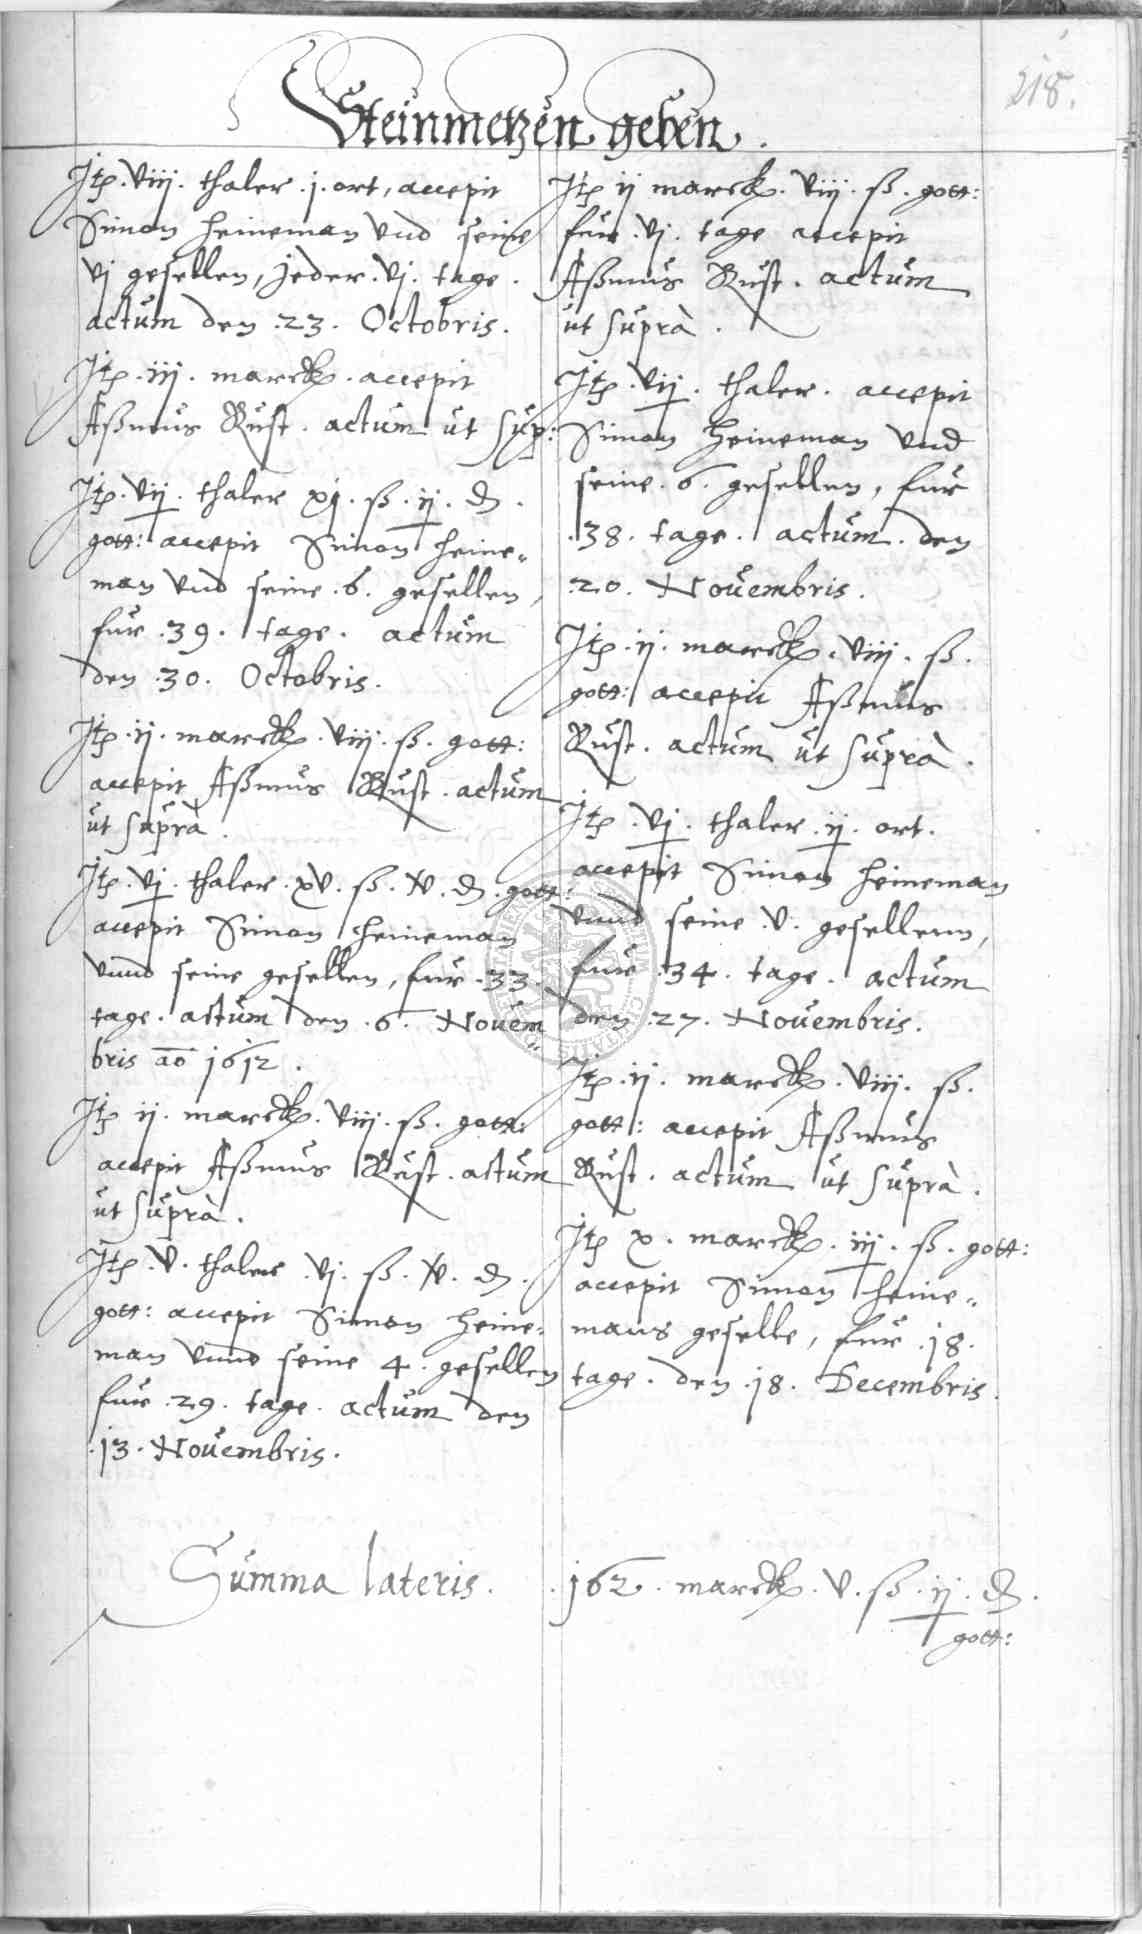 218.
Steinmetzen geben.
Itp. viij. thaler. j. ort, accepit
Simon Heineman vnd seine
vj gesellen, jeder. vj. tage.
actum den .23. Octobris.
Itp. iij. marck. accepit
Aßmus Rust. actum ut sup:
Itp. vij. thaler xj. ß. ij. ₰.
gott: accepit Simon Heine„
man vnd seine .6. gesellen,
fur .39. tage. actum
den .30. Octobris.
Itp. ij. marck. viij. ß. gott:
accepit Aßmus Rust. actum
ut suprà.
Itp. vj. thaler. xv. ß. ₰. gott:
accepit Simon Heineman
vnnd seine gesellen, fur .33.
tage. actum den .6. Nouem„
bris ao 1612.
Itp ij. marck. viij. ß. gott:
accepit Aßmus Rust. actum
ut suprà.
Itp. v. thaler vj. ß. ₰.
gott: accepit Simon Heine„
man vnnd seine 4. gesellen
fur .29. tage. actum den
.13. Nouembris.
Itp ij marck. viij. ß. gott:
fur .vj. tage accepit
Aßmus Rust. actum
ut suprà.
Itp. vij. thaler. accepit
Simon Heineman vnd
seine .6. gesellen, fur
.38. tage. actum. den
.20. Nouembris.
Itp. ij. marck. viij. ß.
gott: accepit Aßmus
Rust. actum ut suprà.
Itp. vj. thaler. ij. ort.
accepit Simon Heineman
vnnd seine .v. gesellenn,
fur .34. tage. actum
den .27. Nouembris.
Itp. ij. marck. viij. ß.
gott: accepit Aßmus
Rust. actum ut suprà.
Itp x. marck. iij. ß. gott:
accepit Simon Heine„
mans geselle, fur .18.
tage. den .18. Decembris.
Summa lateris. .162. marck. v. ß. ij. ₰.
gott: